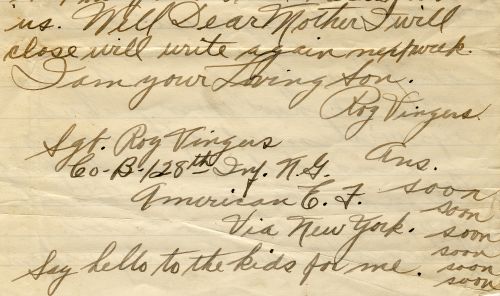 us. Well Dear Mother I will
close will write again next week.
I am your Loving Son.
Roy Vingers.
Sgt. Roy Vingers
Co-B-128th Inf. N.G.
American E. F.
Via New York.
Ans.
soon
soon
soon
soon
soon
soon
Say hello to the kids for me.